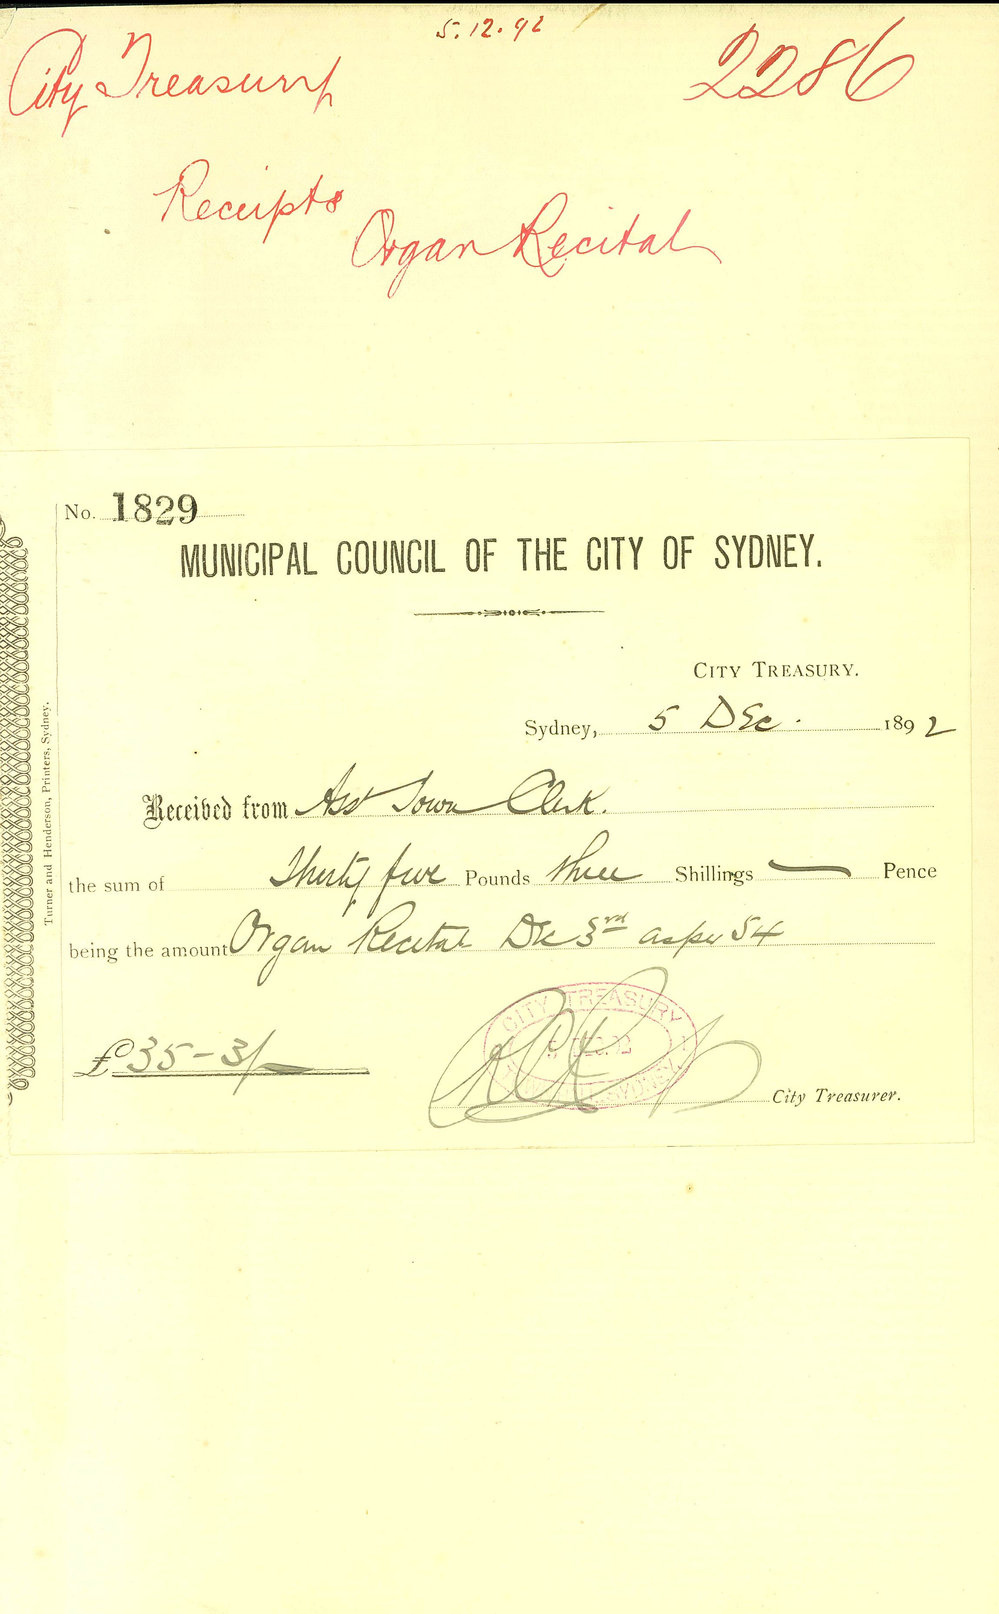 5.12.92
City Treasury 2286
Receipts
Organ Recital
No. 1829
MUNICIPAL COUNCIL OF THE CITY OF SYDNEY.
CITY TREASURY.
Sydney, 5 Dec. 1892
Received from Asst Town Clerk.
the sum of Thirty five Pounds three Shillings — Pence
being the amount Organ Recital Dec 3rd as per 54
£35-3/-
CITY TREASURY
5 DEC. 92
SYDNEY
City Treasurer.
Turner and Henderson, Printers, Sydney.